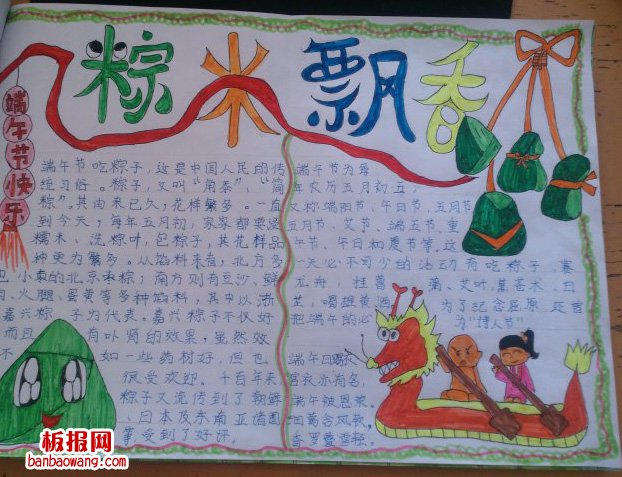 粽米飘香
端午节快乐
端午节吃粽子，这是中国人民的传
统习俗。粽子，又叫"角黍"、"筒
粽"。其由来已久，花样繁多。一直
到今天，每年五月初，家家都要浸
糯米、洗粽叶，包粽子，其花样品
种更为繁多。从馅料来看，北方多
包小枣的北京枣粽；南方则有豆沙、鲜
肉、火腿、蛋黄等多种馅料，其中以浙
嘉兴粽子为代表。嘉兴粽子不仅好
而且有补肾的效果，虽然效
不如一些药材好，但也
很受欢迎。千百年来
粽子又流传到了朝鲜
、日本及东南亚诸国
等受到了好评。
端午节为每
年农历五月初五，
又称端阳节、午日节、五月节
五月节、艾节、端五节、重
午节、午日、夏节等，这
一天必不可少的活动有吃粽子，赛
龙舟，挂菖蒲、艾叶，薰苍术、白
芷，喝雄黄酒
为了纪念屈原，还言
把端午的必
为"诗人节"
端午日赐衣
宫衣亦有名，
端午被恩荣。
细葛含风软，
香罗叠雪轻。
板报网
banbaowang.com